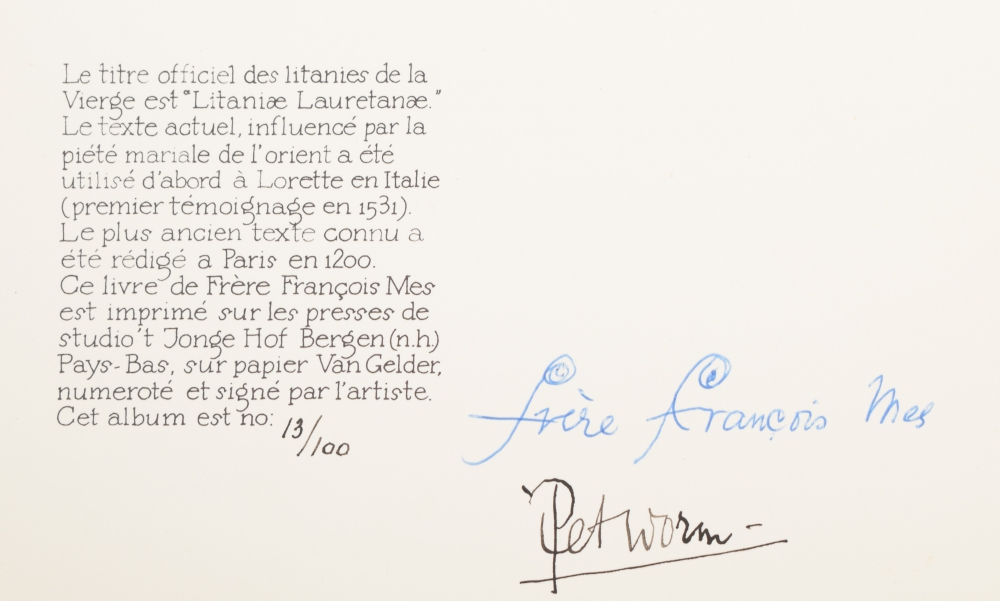 Le titre officiel des litanies de la
Vierge est "Litaniæ Lauretanæ."
Le texte actuel, influencé par la
piété mariale de l'orient a été
utilisé d'abord à Lorette en Italie
(premier témoignage en 1531).
Le plus ancien texte connu a
été rédigé a Paris en 1200.
Ce livre de Frère François Mes
est imprimé sur les presses de
studio 't Jonge Hof Bergen (n.h)
Pays-Bas, sur papier Van Gelder,
numeroté et signé par l'artiste.
Cet album est no: 13/100
Frère François Mes
Pet Worm -